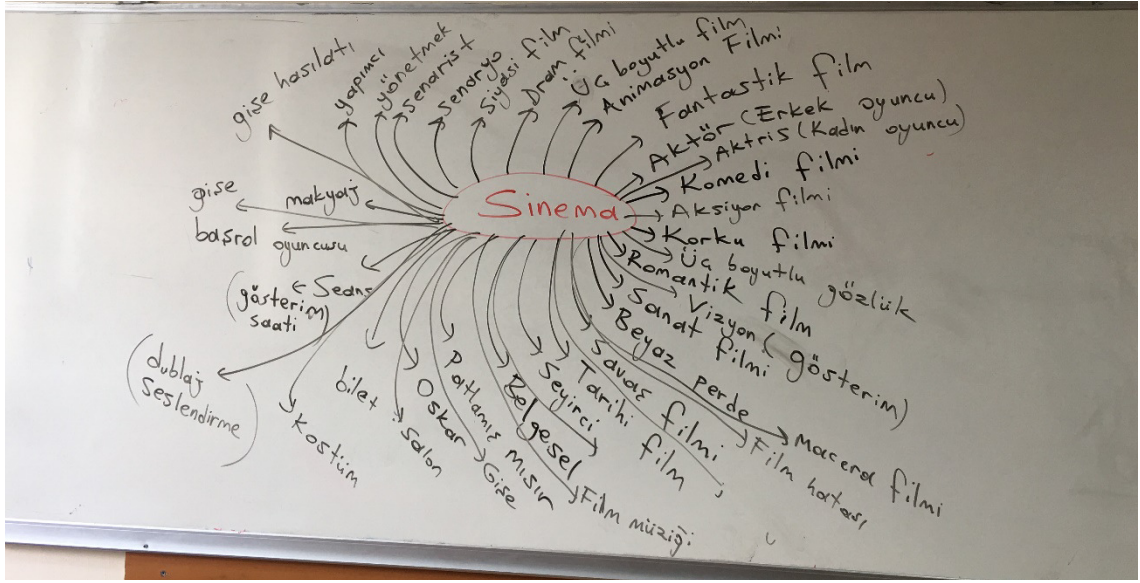 Sinema
gişe hasılatı
yapımcı
yönetmek
Senarist
Senaryo
Siyasi film
Dram filmi
Üç boyutlu film
Animasyon Filmi
Fantastik film
Aktör (Erkek oyuncu)
Aktris (Kadın oyuncu)
Komedi filmi
Aksiyon filmi
Korku filmi
Üç boyutlu gözlük
Romantik film
Vizyon (gösterim)
Sanat filmi
Beyaz perde
Macera filmi
Film hatası
Savaş filmi
Tarihi film
Seyirci
Belgesel
Film müziği
Patlamış mısır
Gişe
Oskar
Salon
bilet
Kostüm
(dublaj
seslendirme)
Seans
(gösterim)
saati
başrol oyuncusu
gişe
makyaj